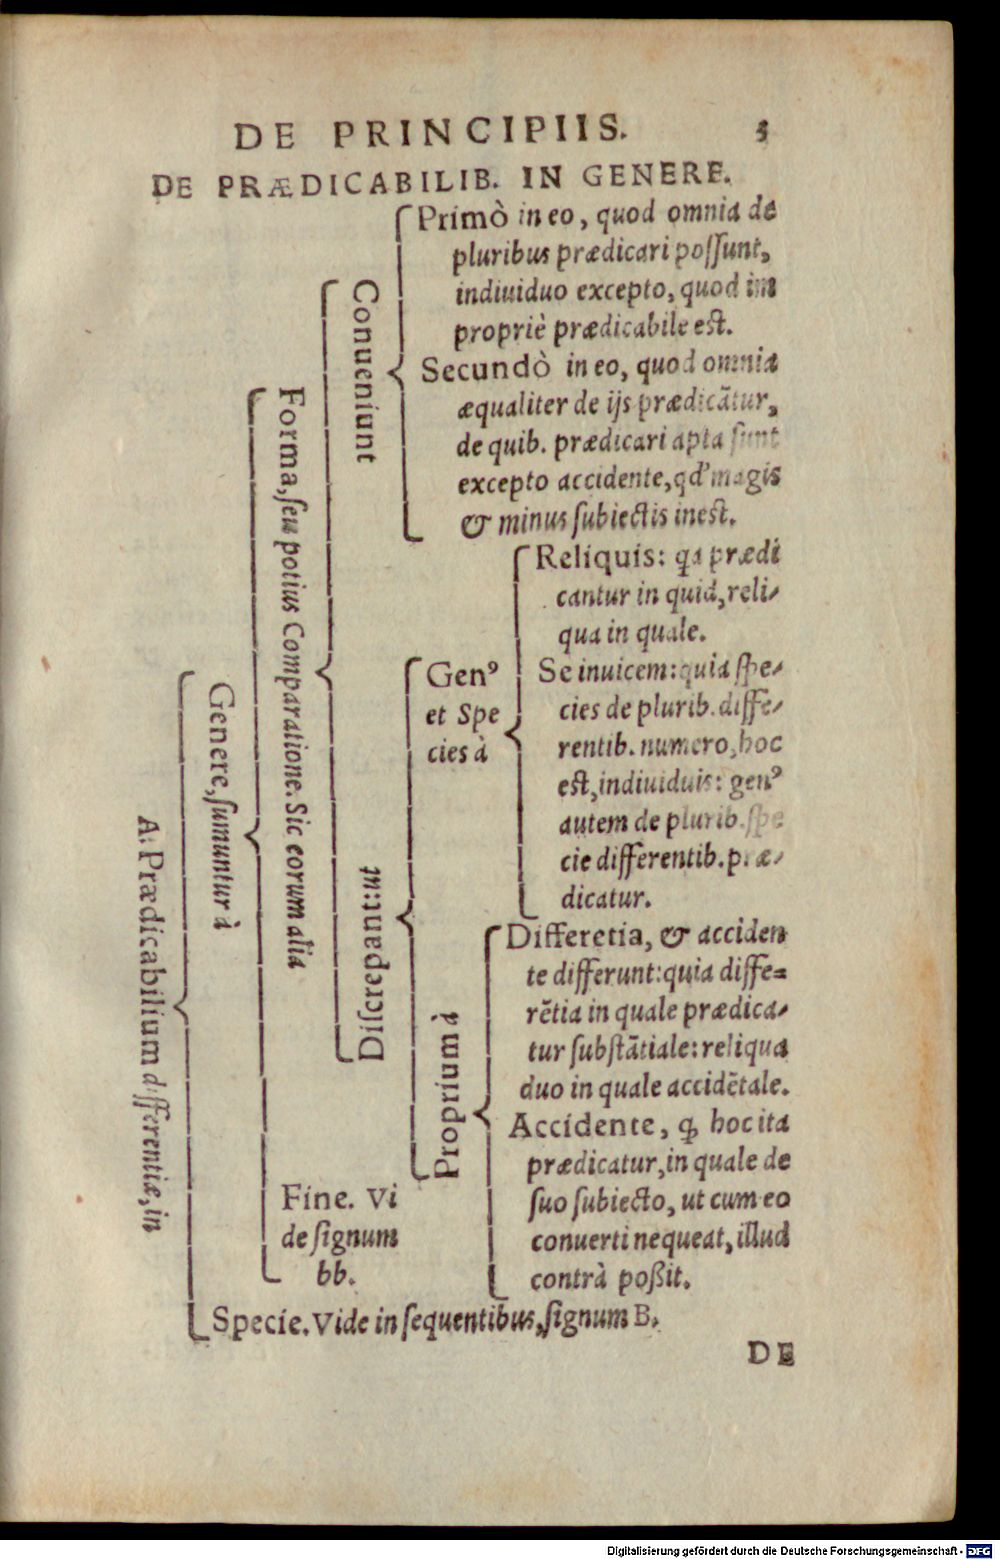 DE PRINCIPIIS. 5
DE PRÆDICABILIB. IN GENERE.
A. Prædicabilium differentiæ, in
Genere, ſumuntur à
Forma, ſeu potius Comparatione. Sic eorum alia
Conueniunt
Primò in eo, quod omnia de
pluribus prædicari poſſunt,
indiuiduo excepto, quod im
propriè prædicabile est.
Secundò in eo, quod omnia
æqualiter de ijs prædicãtur,
de quib. prædicari apta ſunt
excepto accidente, qd' magis
& minus ſubiectis inest.
Diſcrepant: ut
Genꝰ
et Spe
cies à
Reliquis: qa prædi
cantur in quid, reli-
qua in quale.
Se inuicem: quia ſpe-
cies de plurib. diffe-
rentib. numero, hoc
est, indiuiduis: genꝰ
autem de plurib. ſpe
cie differentib. præ-
dicatur.
Proprium à
Differẽtia, & acciden
te differunt: quia diffe=
rẽtia in quale prædica-
tur ſubſtãtiale: reliqua
duo in quale accidẽtale.
Accidente, ꝙ hoc ita
prædicatur, in quale de
ſuo ſubiecto, ut cum eo
conuerti nequeat, illud
contrà poßit.
Fine. Vi
de ſignum
bb.
Specie. Vide in ſequentibus, ſignum B.
DE
Digitalisierung gefördert durch die Deutsche Forschungsgemeinschaft - DFG